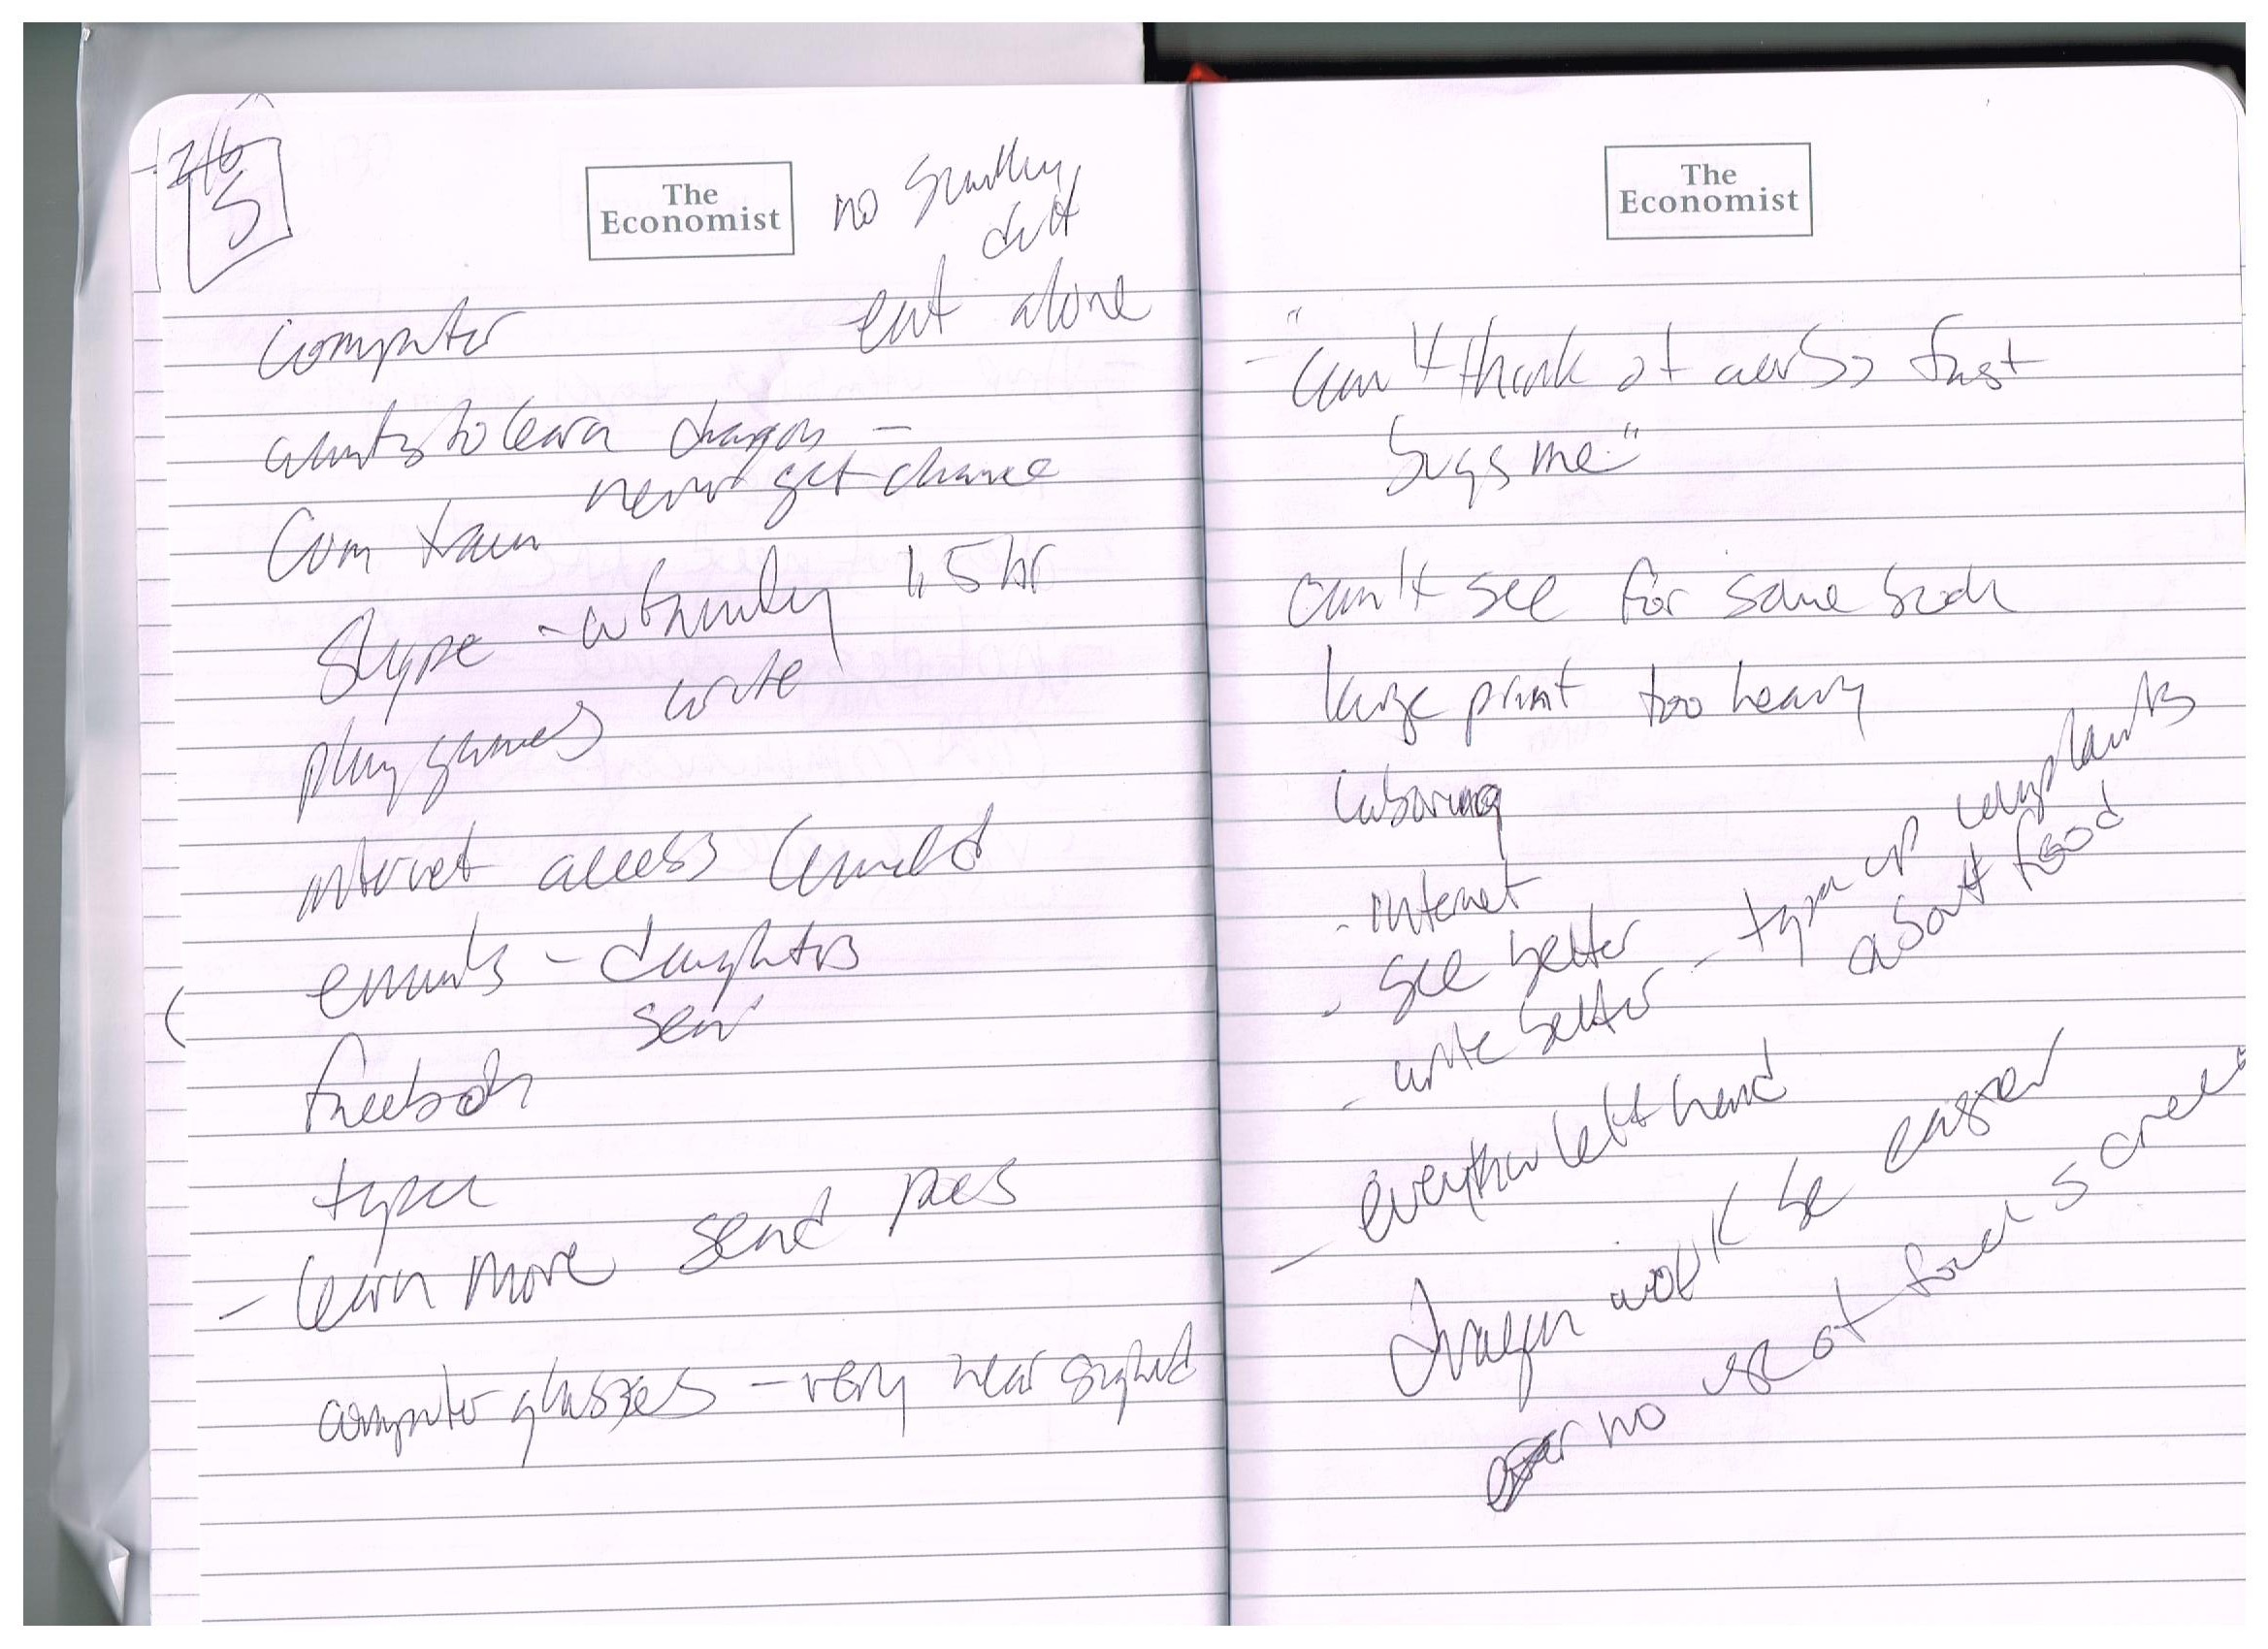 The
Economist
no
eat alone
computer
wants to learn dragon -
never get chance
Com
Skype - w family 1.5 hr
play games write
internet access
emails - daughters
facebook
learn more send pics
computer glasses - very near sighted
The
Economist
- "can't think of words fast
bugs me"
can't see for some
large print too heavy
- internet
- see better
- write better - type up complaints
about food
- everything left hand
dragon would be easier
no use of touch screen